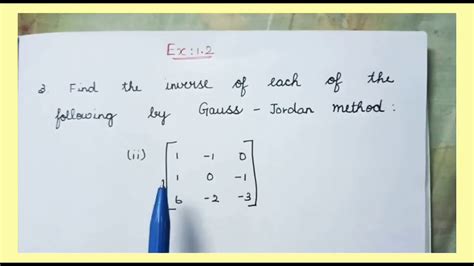 Ex:1.2
3 Find the inverse of each of the
following by Gauss - Jordan method :
(ii) [ 1 -1 0
1 0 -1
6 -2 -3 ]